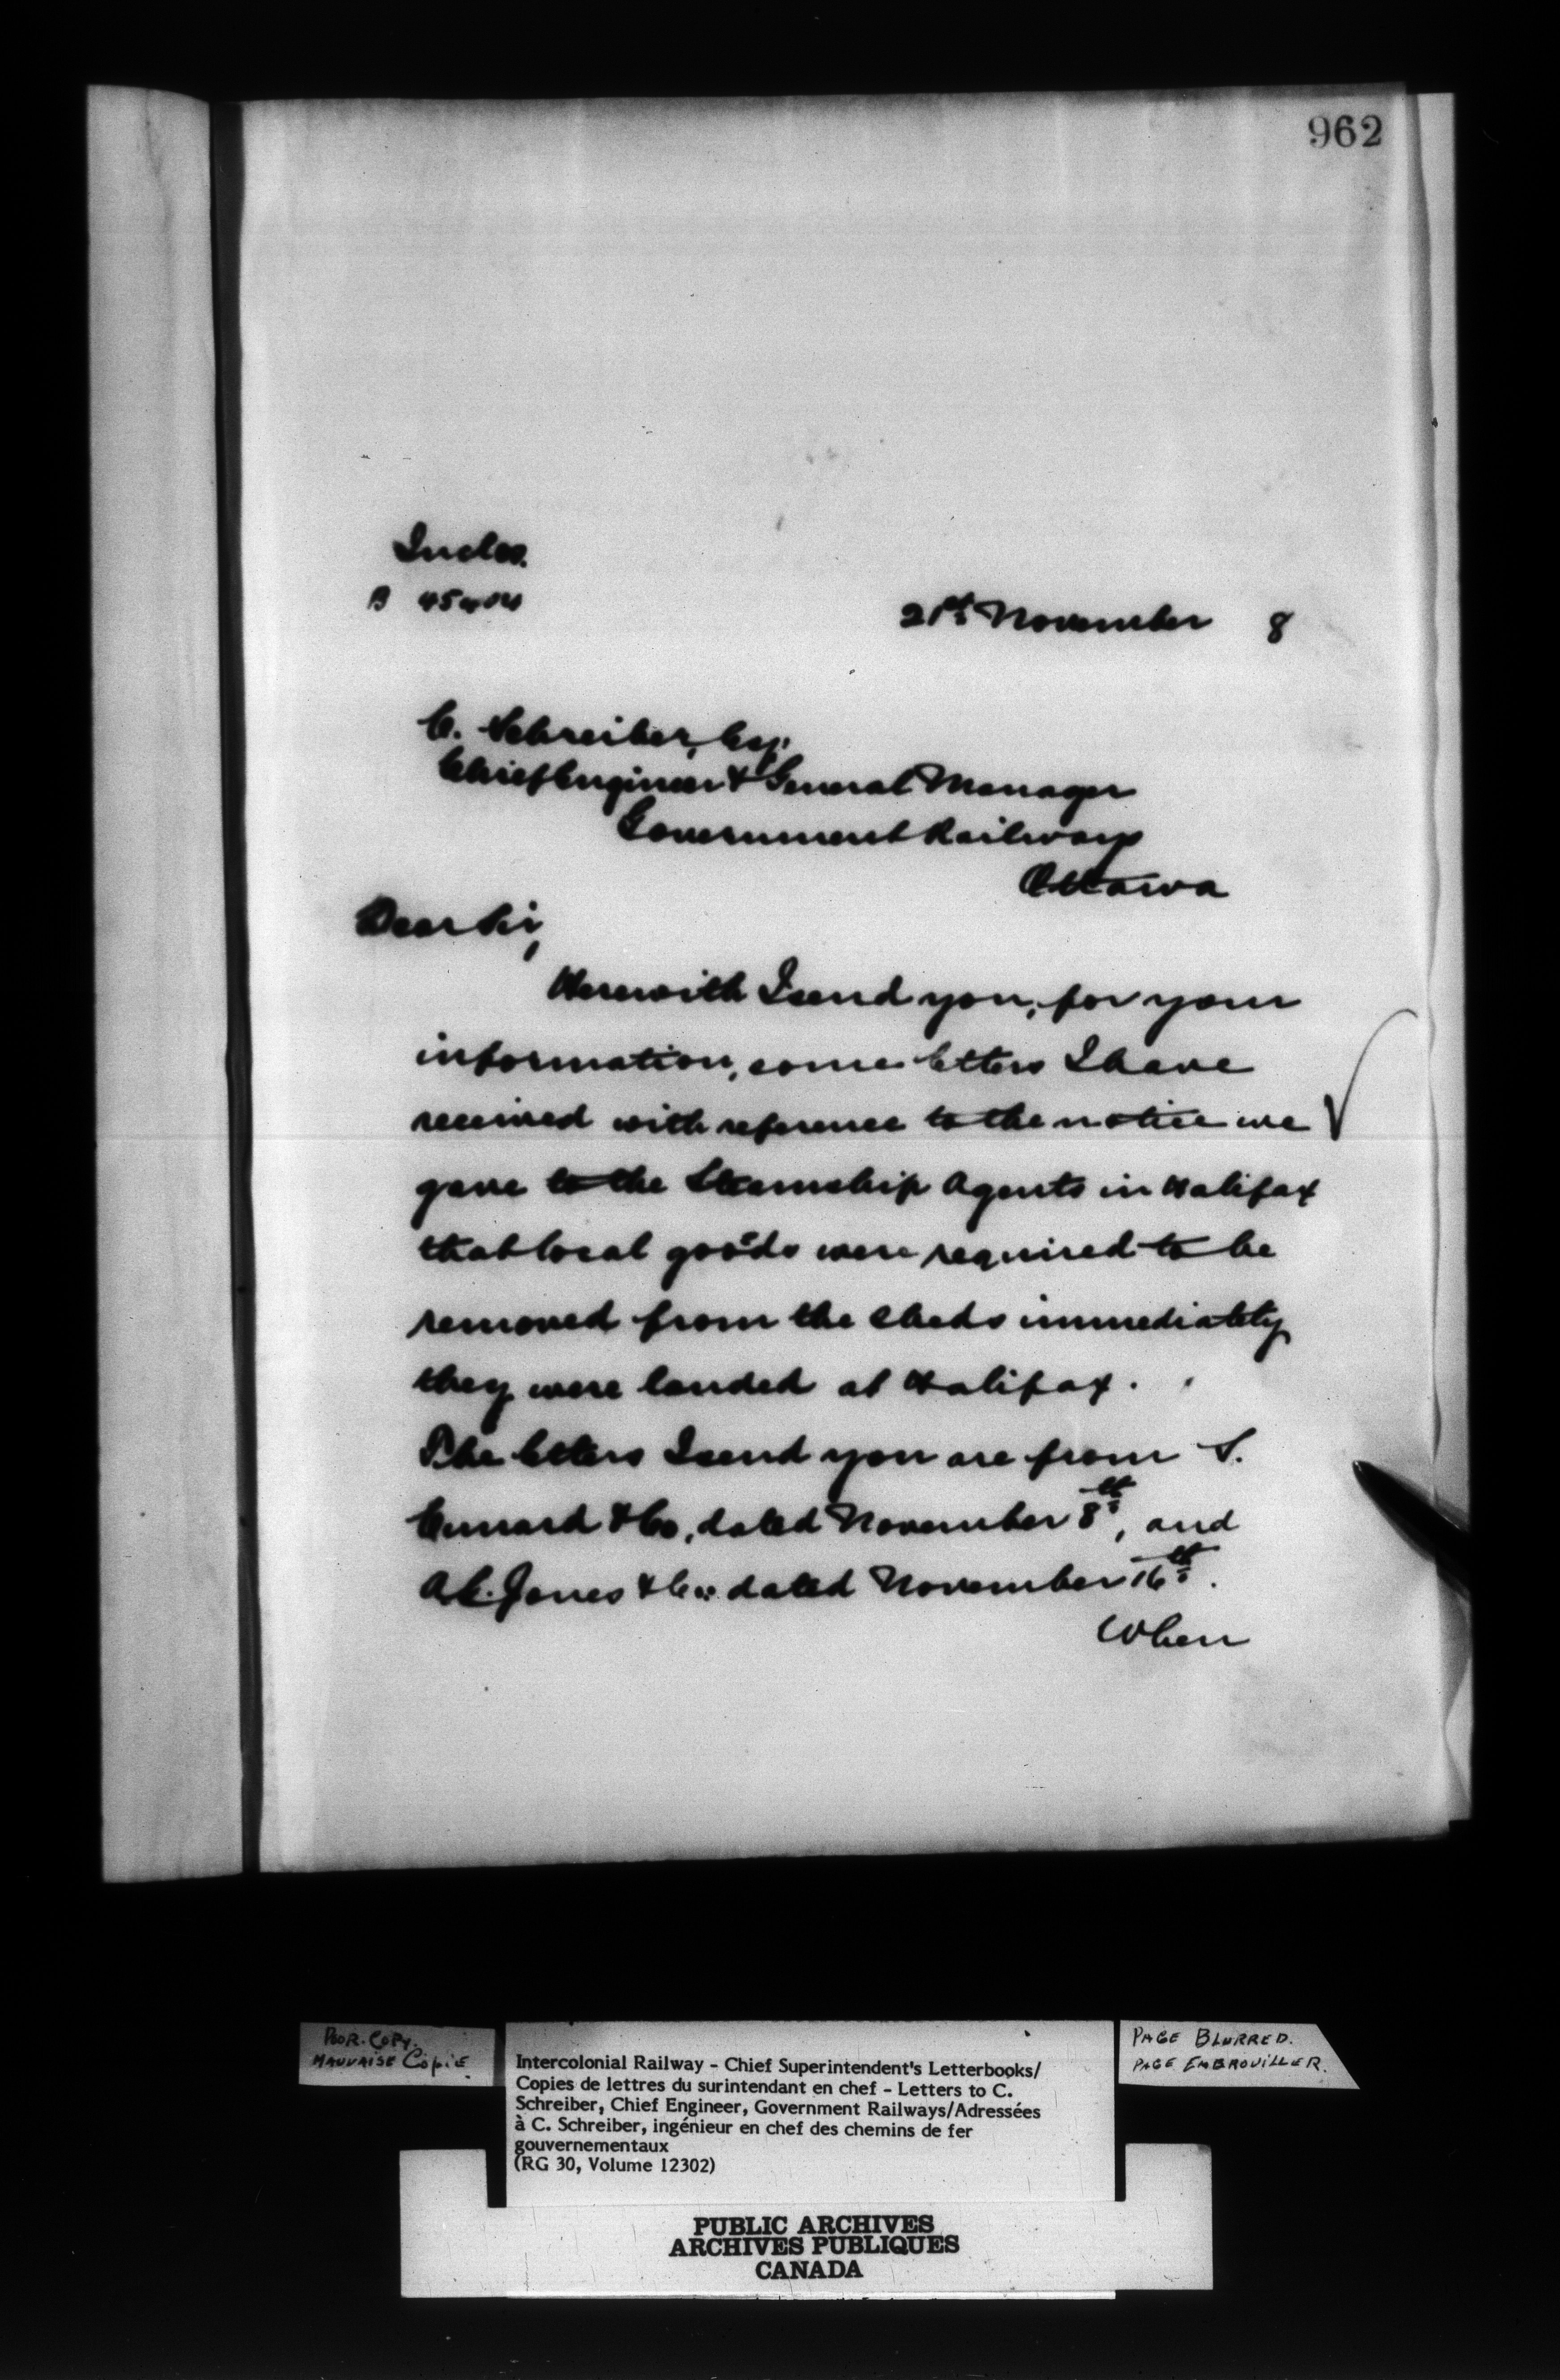 962
Inclos.
B
21st November 8
C. Schreiber, Esq.
Chief Engineer & General Manager
Government Railways
Ottawa
Dear Sir,
Herewith I send you, for your
information, some letters I have
received with reference to the notice we
gave to the Steamship Agents in Halifax
that local goods were required to be
removed from the sheds immediately
they were landed at Halifax.
The letters I send you are from S.
Cunard & Co, dated November 8th, and
A.G. Jones & Co. dated November 16th.
When
POOR COPY.
MAUVAISE COPIE
Intercolonial Railway - Chief Superintendent's Letterbooks/
Copies de lettres du surintendant en chef - Letters to C.
Schreiber, Chief Engineer, Government Railways/Adressées
à C. Schreiber, ingénieur en chef des chemins de fer
gouvernementaux
(RG 30, Volume 12302)
PAGE BLURRED.
PAGE EMBROUILLER.
PUBLIC ARCHIVES
ARCHIVES PUBLIQUES
CANADA